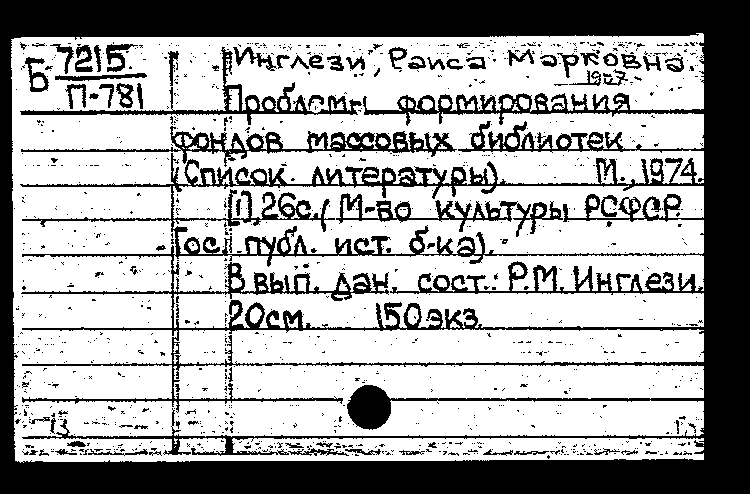 Б 7215
П-781
Инглези, Раиса Марковна.
1927
Проблемы формирования
фондов массовых библиотек.
(Список литературы). М., 1974.
[1], 26с. (М-во культуры РСФСР.
Гос. публ. ист. б-ка).
В вып. дан. сост.: Р.М. Инглези.
20см. 150экз.